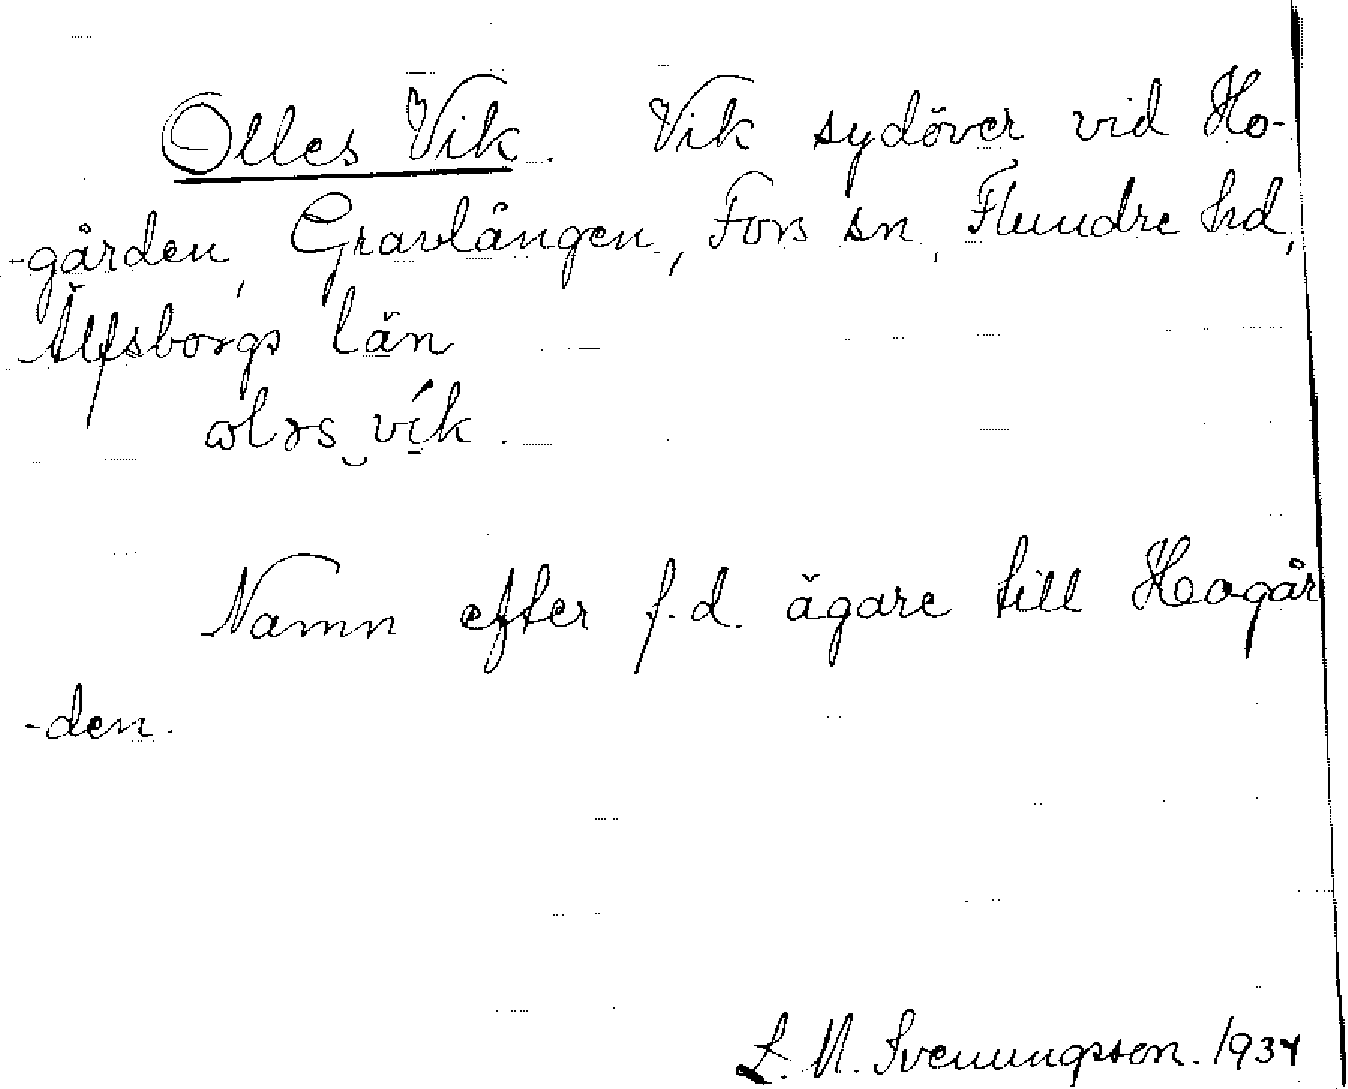 Olles Vik. Vik sydöver vid Ho-
-gården, Gravlången, Fors sn, Flundre hd,
Älfsborgs län
Namn efter f.d. ägare till Hogår
-den.
L. M. Svenungsson. 1934